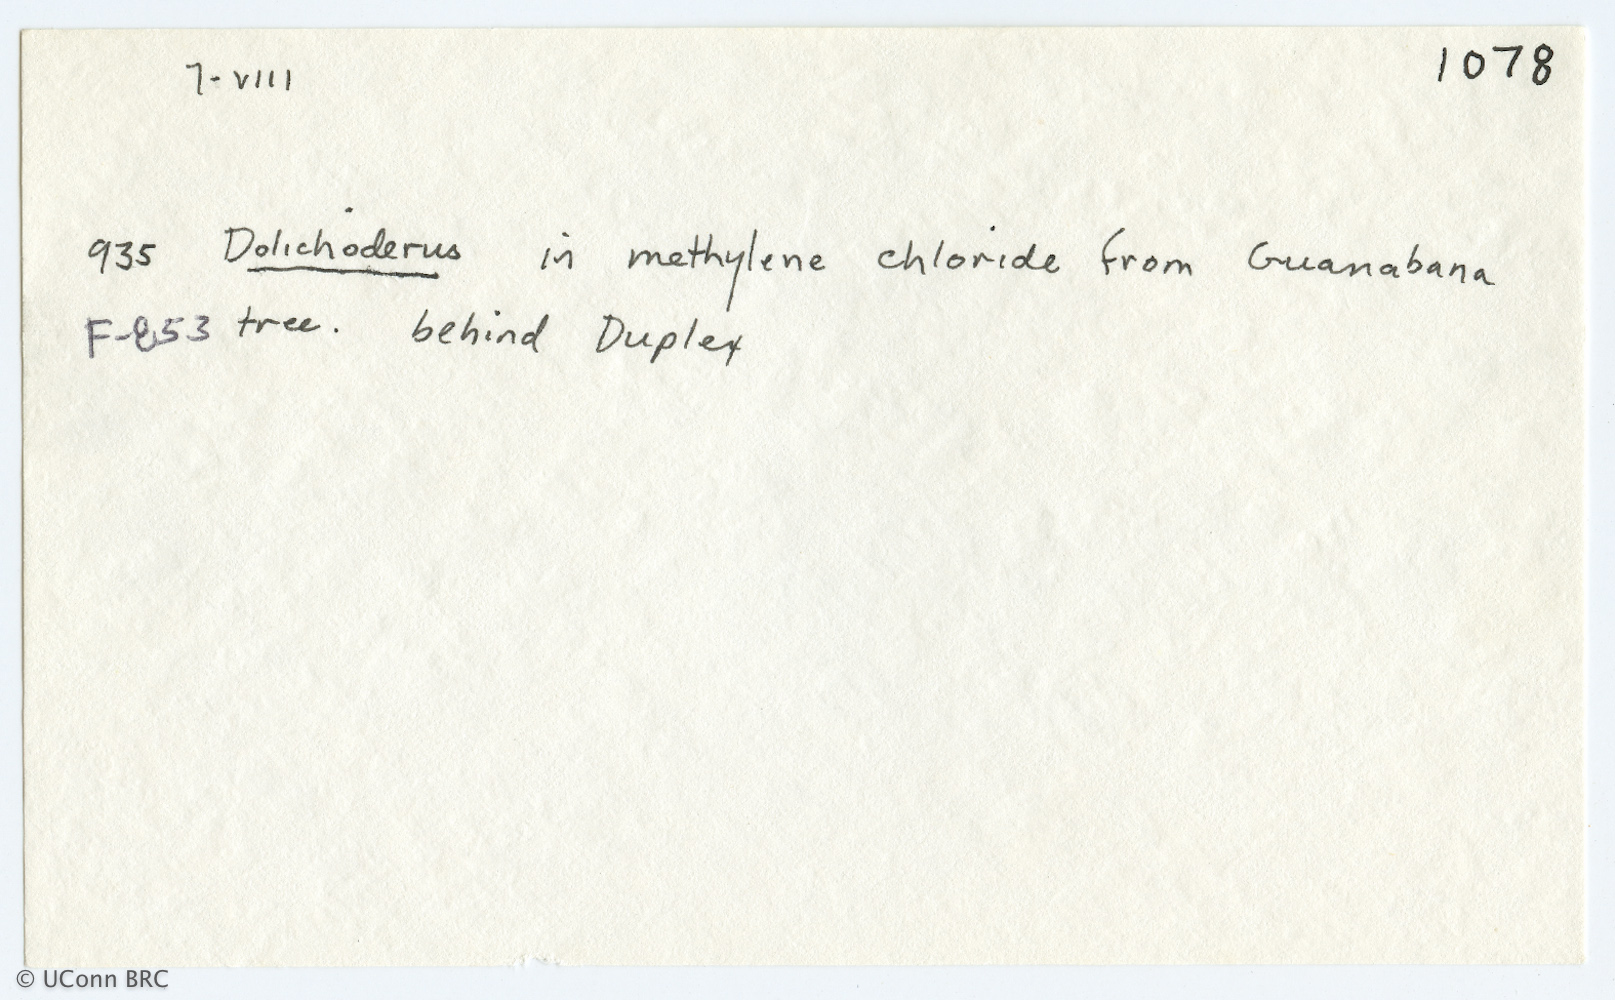 7-VIII 1078
935 Dolichoderus in methylene chloride from Guanabana
F-853 tree. behind Duplex
© UConn BRC